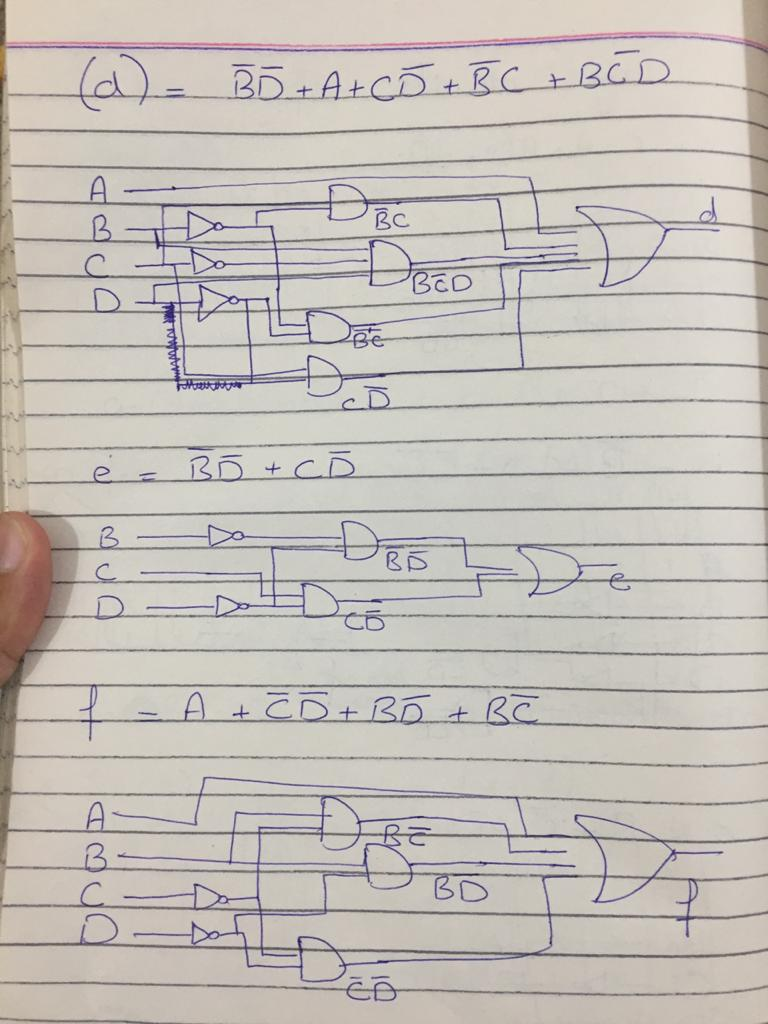 (d) = B̅D̅ + A + CD̅ + B̅C + BC̅D
A
B̅C
d
B
C
BC̅D
D
B̅C̅
CD̅
e = B̅D̅ + CD̅
B
B̅D̅
C
e
D
CD̅
f = A + C̅D̅ + BD̅ + BC̅
A
BC̅
B
BD̅
C
f
D
C̅D̅